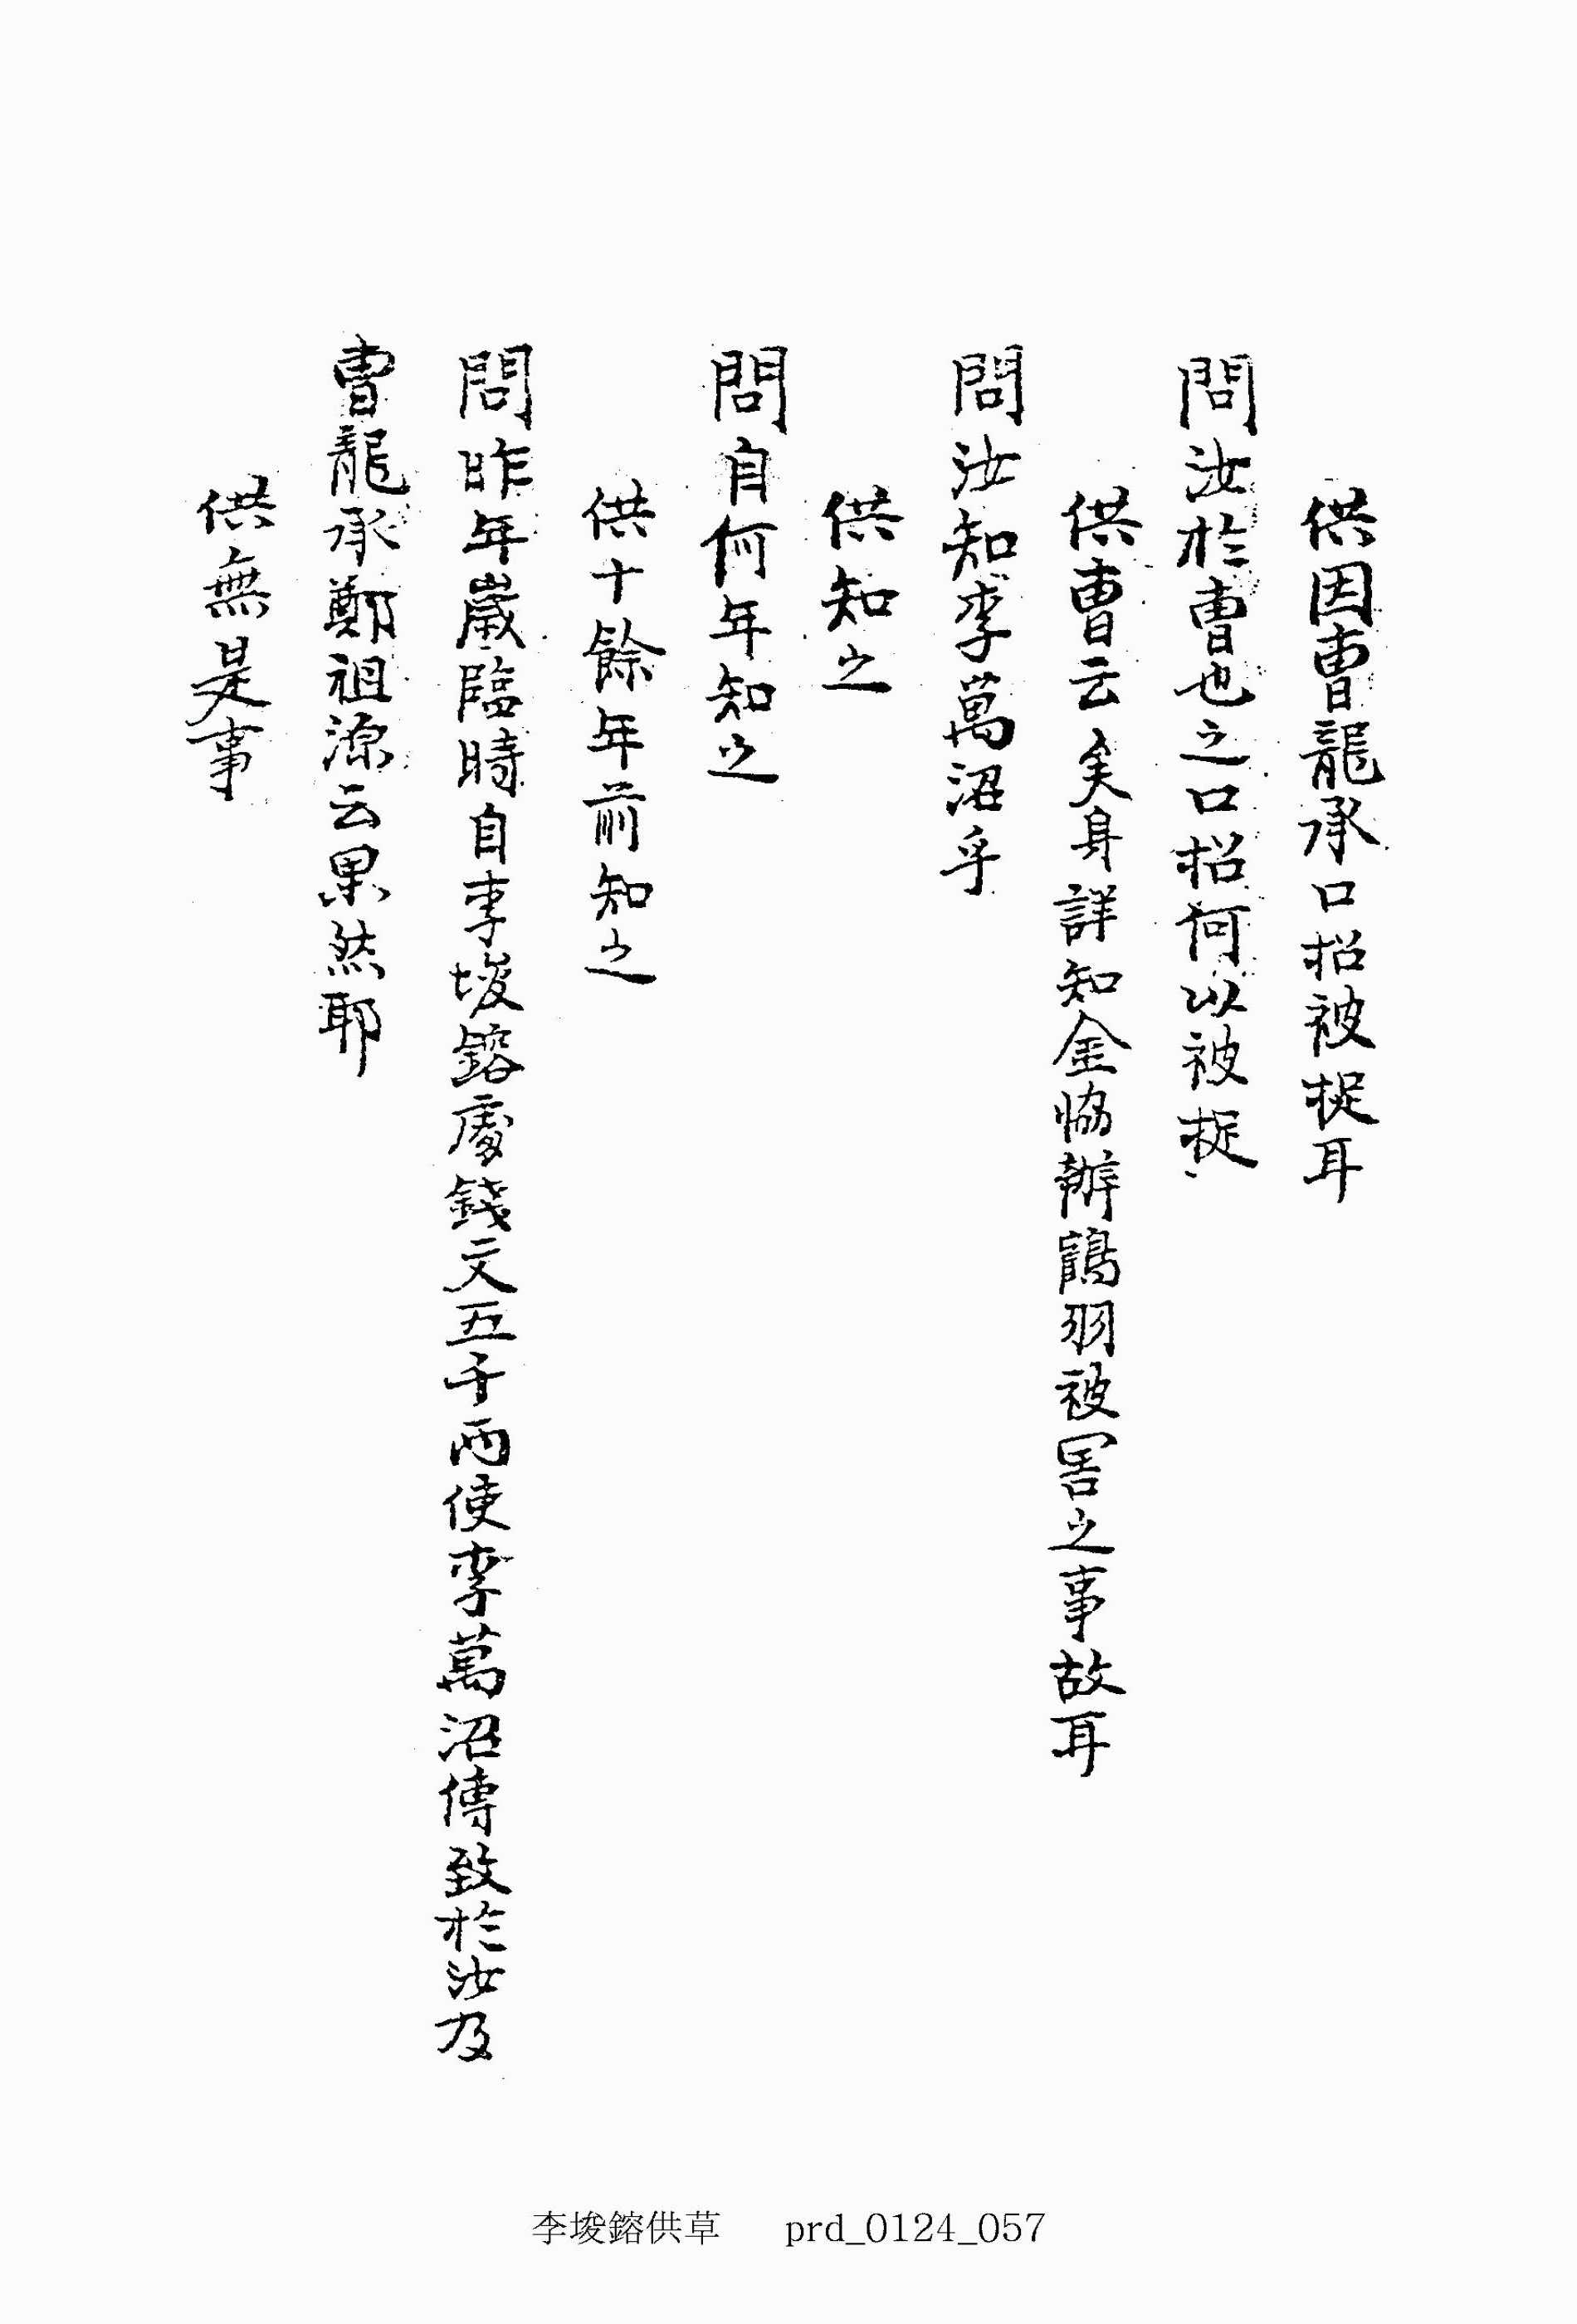 供因曺龍承口招被捉耳
問汝於曺也之口招何以被捉
供曺云矣身詳知金協辦鶴羽被害之事故耳
問汝知李萬沼乎
供知之
問自何年知之
供十餘年前知之
問昨年歲臨時自李埈鎔處錢文五千両使李萬沼傳致於汝及
曺龍承鄭祖源云果然耶
供無是事
李埈鎔供草 prd_0124_057